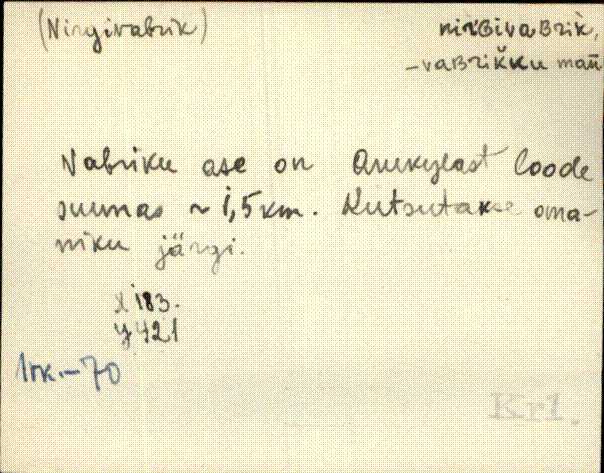 (Nirgivabrik) nirGivaBrik̀,
-vaBrik̆ku mañ
Vabriku ase on Arukylast loode
suunas ~ 1,5 km. Kutsutakse oma-
niku järgi.
x 183.
y 421
KrL.